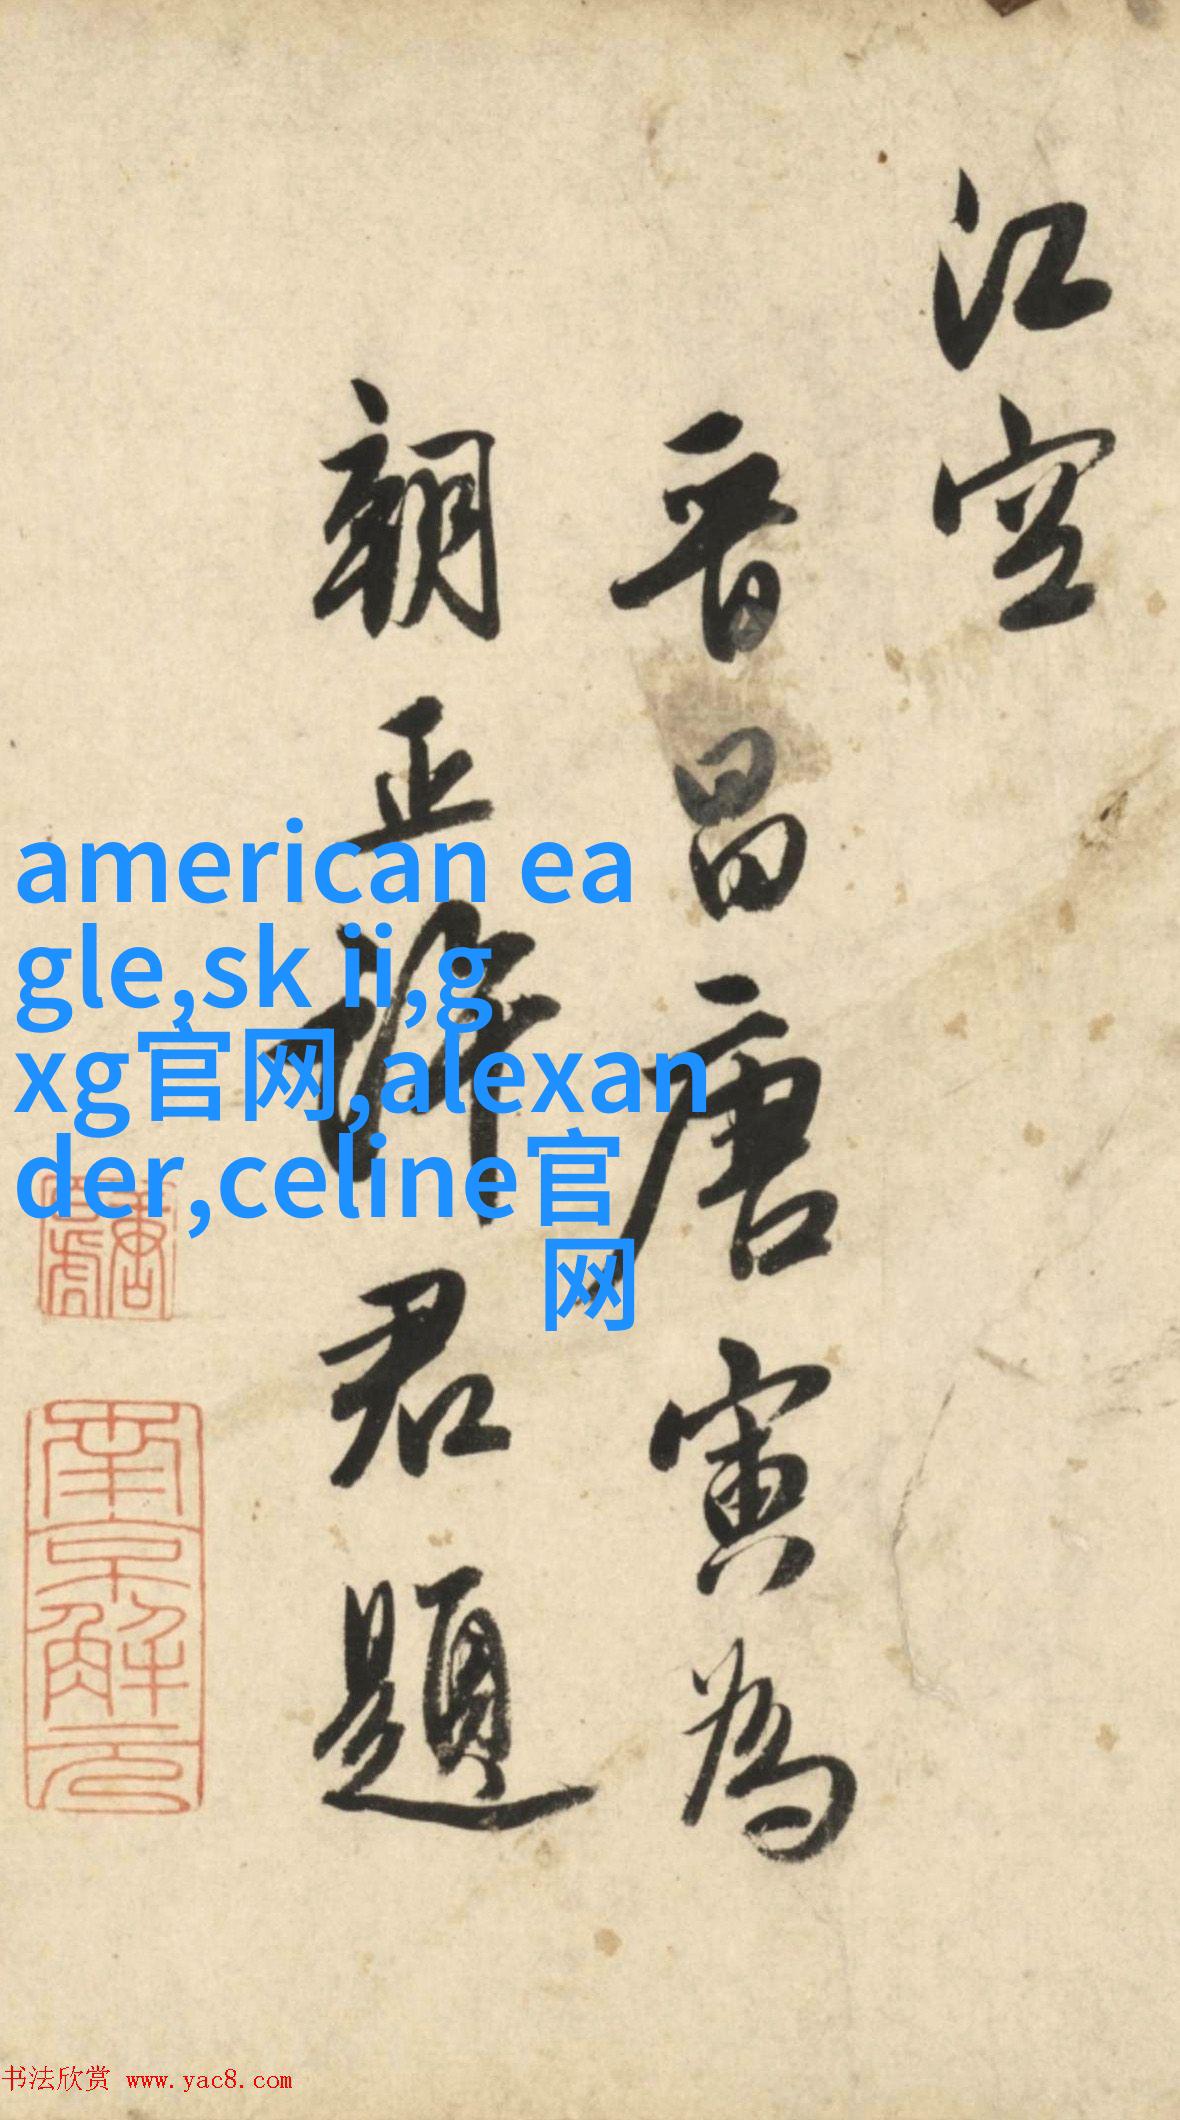 江空
晋昌唐寅為
朝正
君題
american ea
gle,sk ii,g
xg官网,alexan
der,celine官
网
南京解元
书法欣赏 www.yac8.com